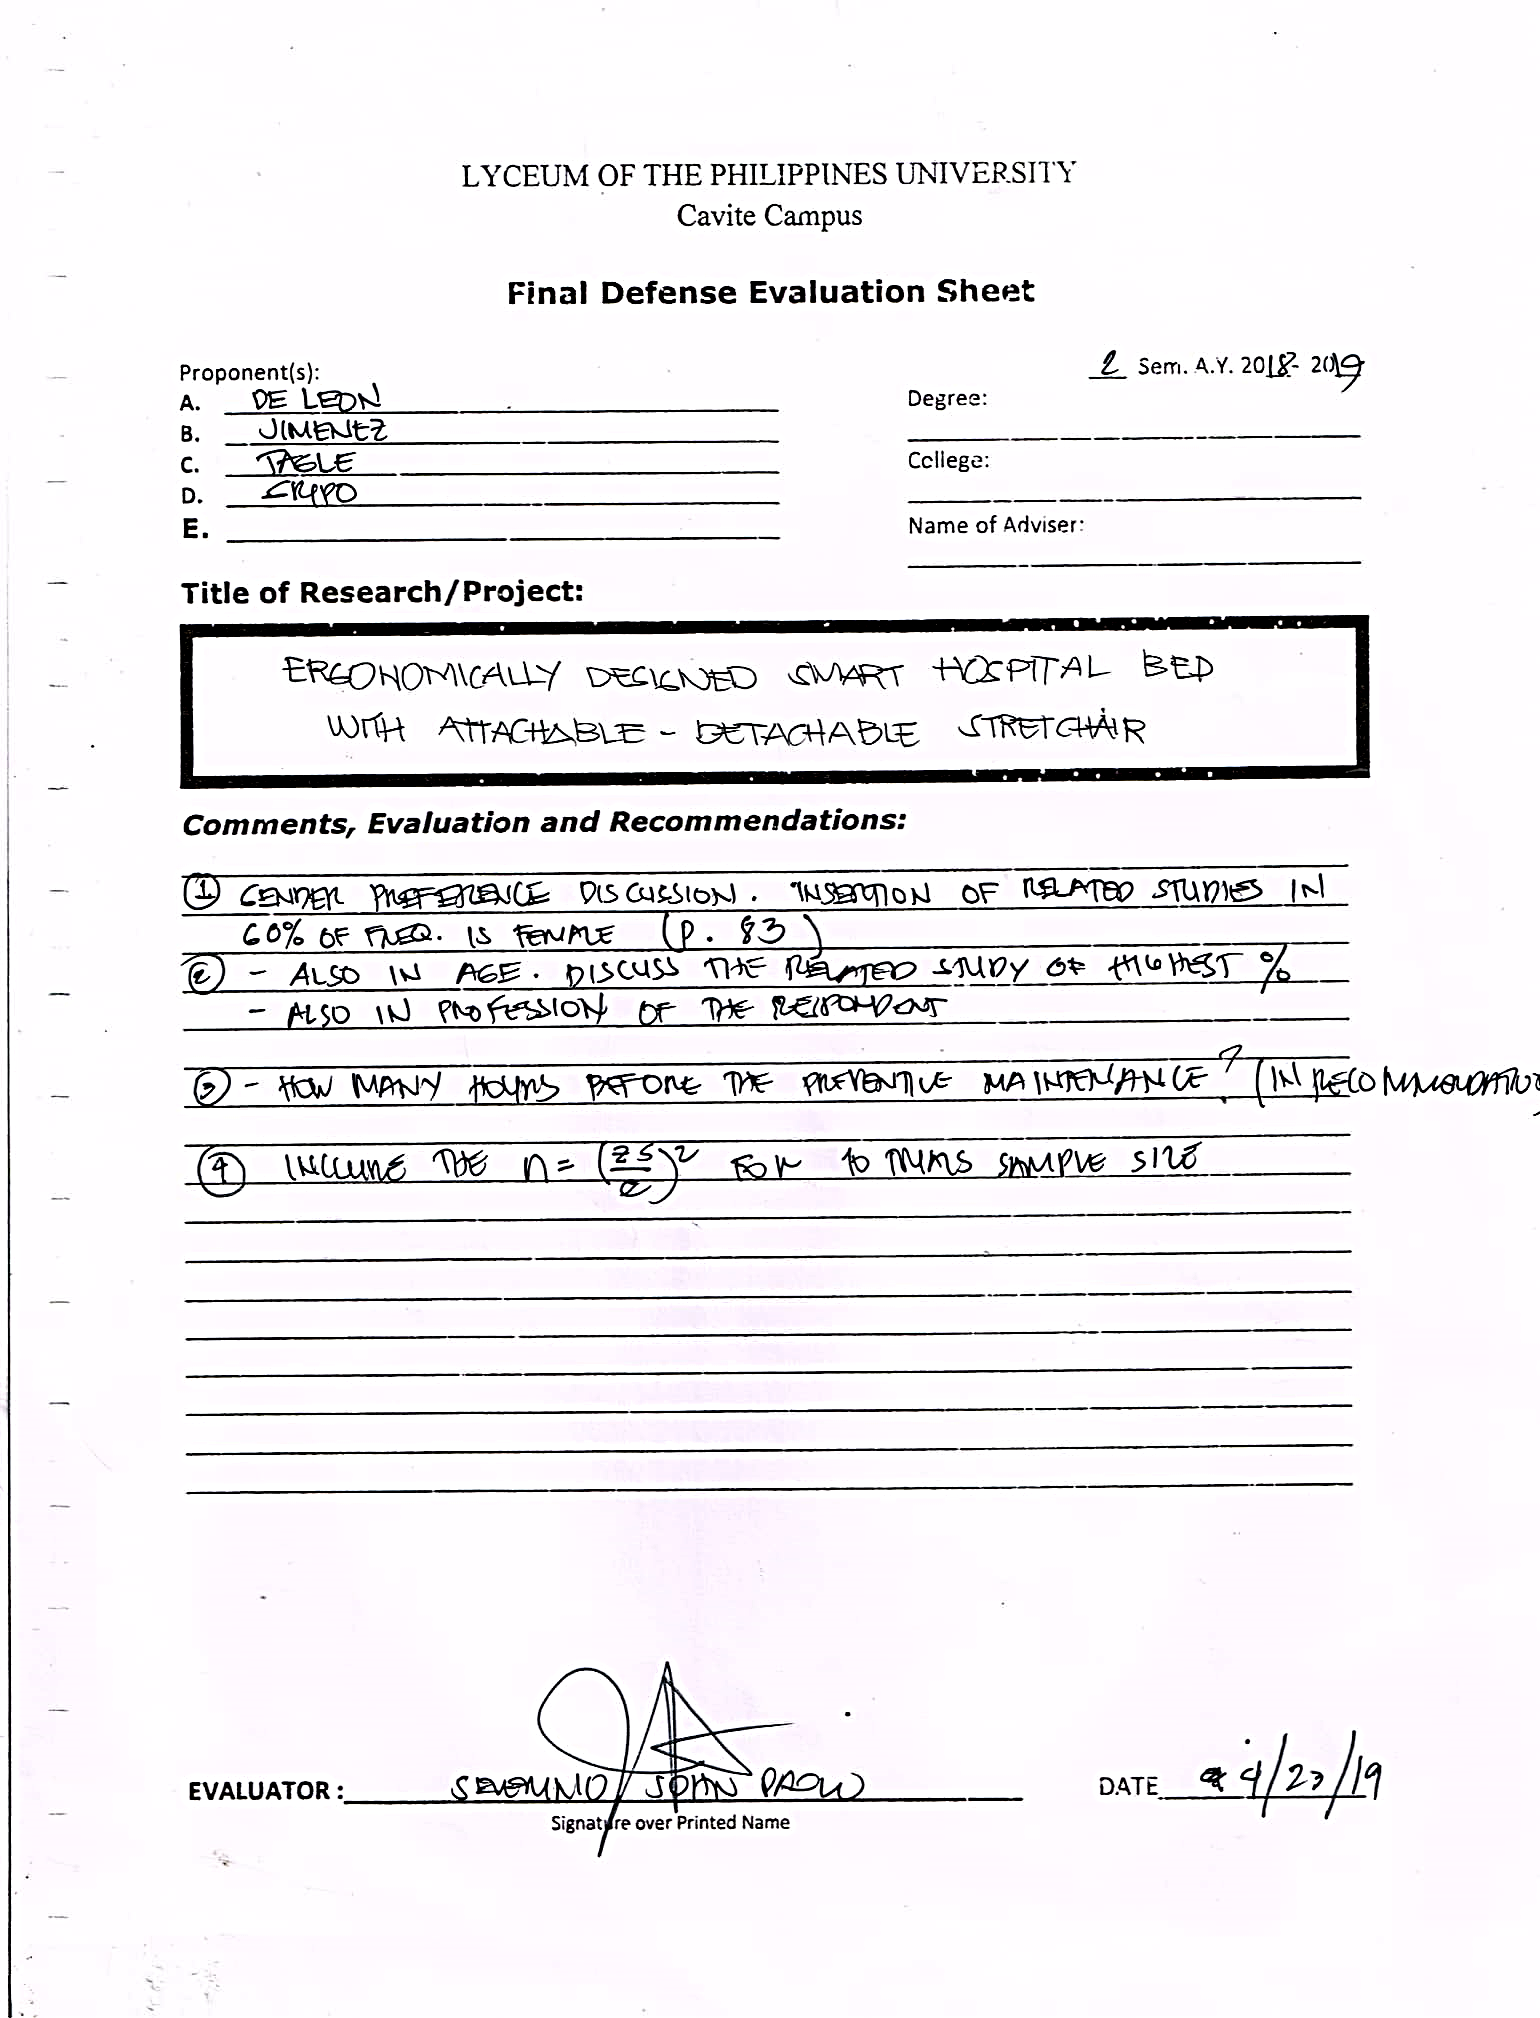 LYCEUM OF THE PHILIPPINES UNIVERSITY
Cavite Campus
Final Defense Evaluation Sheet
2 Sem. A.Y. 2018- 2019
Proponent(s):
A. DE LEON
B. JIMENEZ
C. TAGLE
D.
E.
Degree:
College:
Name of Adviser:
Title of Research/Project:
ERGONOMICALLY DESIGNED SMART HOSPITAL BED
WITH ATTACHABLE - DETACHABLE STRETCHAIR
Comments, Evaluation and Recommendations:
1 GENDER PREFERENCE DISCUSSION. INSERTION OF RELATED STUDIES IN
60% OF FREQ. IS FEMALE (P. 83)
2 - ALSO IN AGE. DISCUSS THE RELATED STUDY OF HIGHEST %
- ALSO IN PROFESSION OF THE RESPONDENT
3 - HOW MANY HOURS BEFORE THE PREVENTIVE MAINTENANCE? (IN
4 INCLUDE THE n = (ZS/e)² FOR 10 TRIALS SAMPLE SIZE
EVALUATOR : JOHN
Signature over Printed Name
DATE 4/23/19